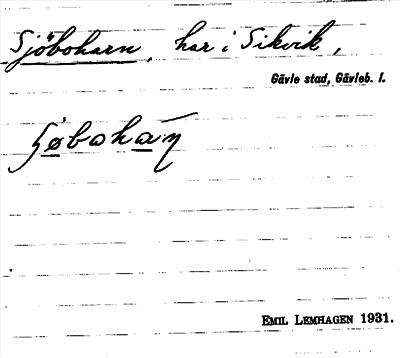 Sjöboharn, har i Sikvik,
Gävle stad, Gävleb. l.
EMIL LEMHAGEN 1931.